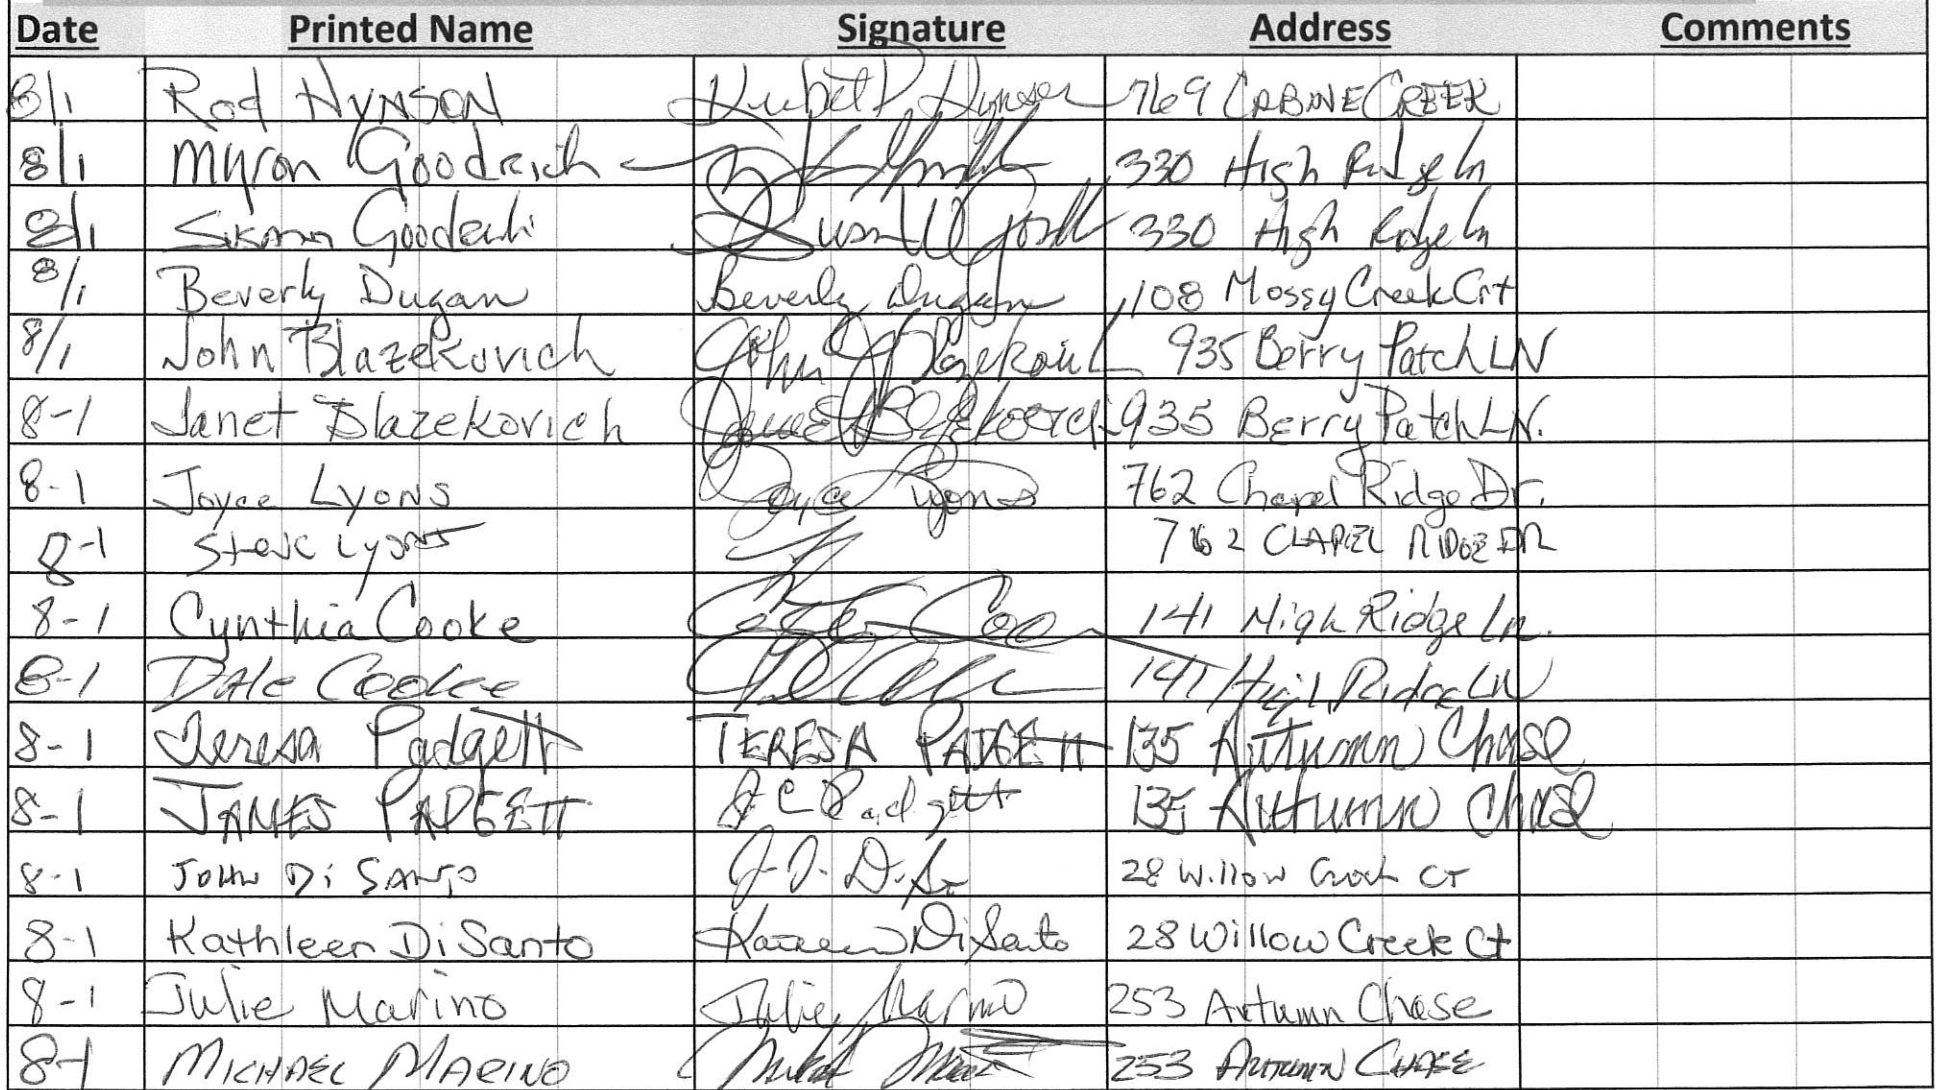 Date Printed Name Signature Address Comments
8/1 Rod HYNSON Hynson 769 CABINE CREEK
8/1 Myron Goodrich 330 High Ridge Ln
8/1 Susan 330 High Ridge Ln
8/1 Beverly Dugan Beverly Dugan 108 Mossy Creek Crt
8/1 John Blazekovich John Blazekovich 935 Berry Patch LN
8-1 Janet Blazekovich Janet Blazekovich 935 Berry Patch LN.
8-1 Joyce Lyons Joyce Lyons 762 Chapel Ridge Dr.
8-1 Steve Lyons 762 CHAPEL RIDGE DR
8-1 Cynthia Cooke 141 High Ridge Ln.
8-1 Dale Cooke 141 High Ridge LN
8-1 Teresa Padgett TERESA PADGETT 135 Autumn Chase
8-1 JAMES PADGETT J C Padgett 135 Autumn Chase
8-1 JOHN Di SANTO 28 Willow Creek CT
8-1 Kathleen DiSanto Kathleen DiSanto 28 Willow Creek Ct
8-1 Julie Marino Julie Marino 253 Autumn Chase
8-1 MICHAEL MARINO 253 AUTUMN CHASE